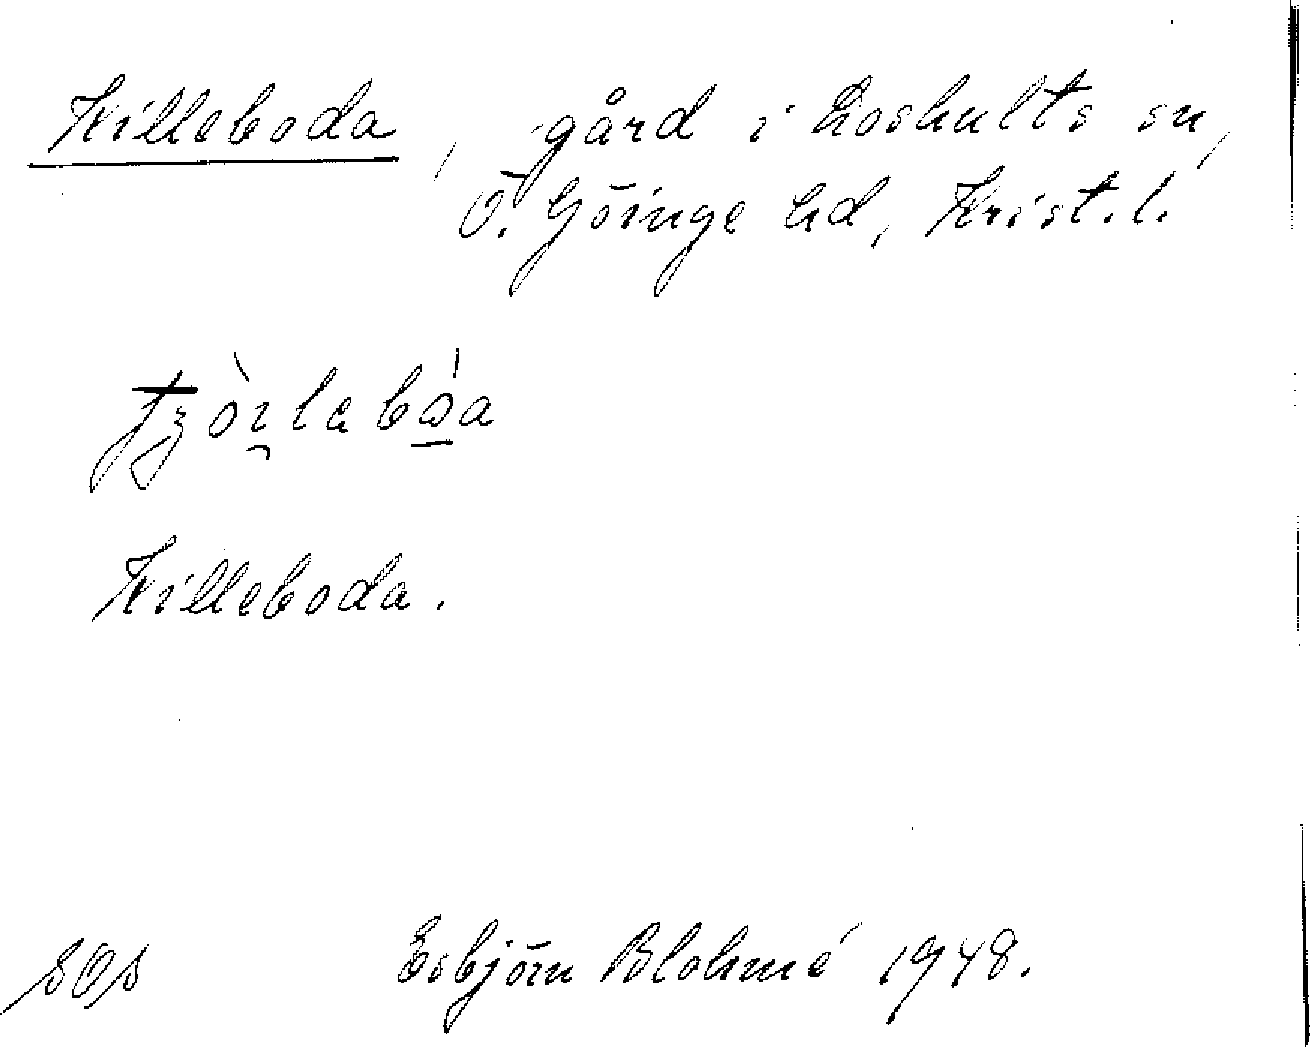 Killeboda, gård i Loshults sn,
Ö. Göinge hd, Krist. l.
Killeboda.
SOS Esbjörn Blohmé 1948.